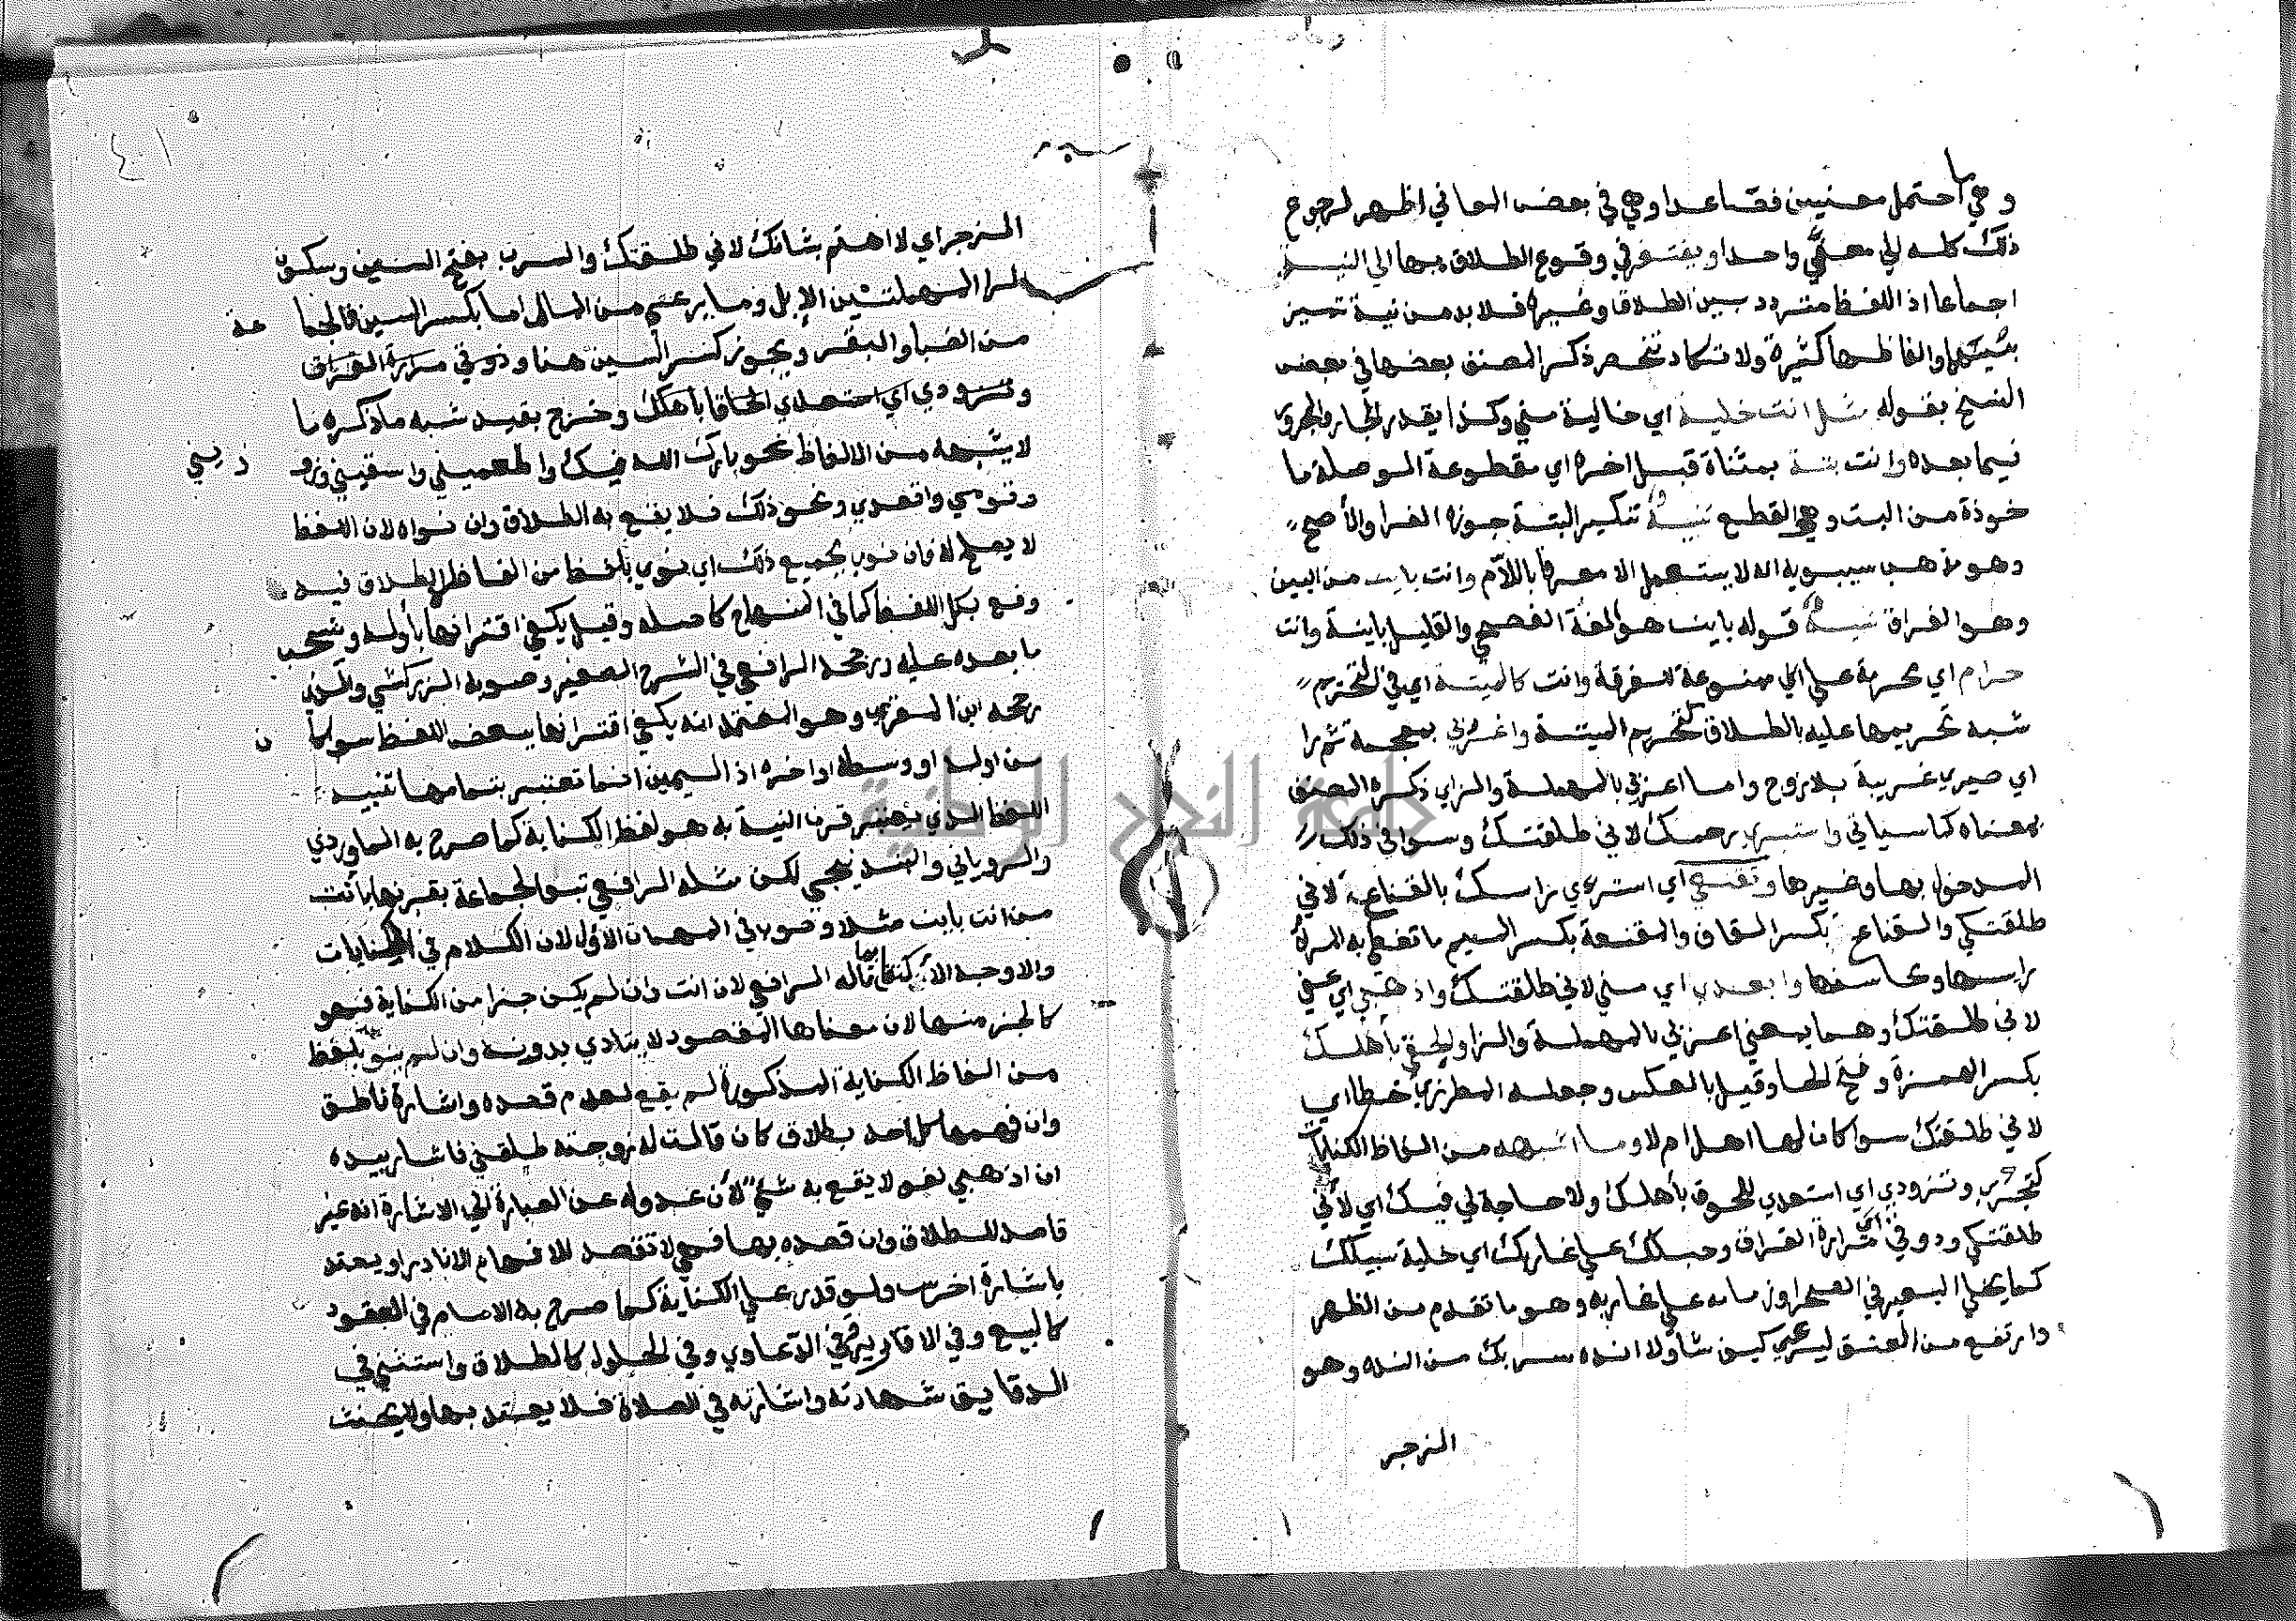 وهي ما احتمل معنيين فصاعدا وهي في بعض المعاني اظهر لرجوع
ذلك كله الي معني واحد ويفتقر في وقوع الطلاق بها الي النية
اجماعا اذ اللفظ متردد بين الطلاق وغيره فلا بد من نية تميز
بينهما والفاظها كثيرة ولا تكاد تنحصر ذكر المصنف بعضها في بعض
النسخ بقوله مثل انت خلية اي خالية مني وكذا يقدر الجار والمجرور
فيما بعده وانت بتة بمثناة قبل اخره اي مقطوعة الوصلة ما
خوذة من البت وهي القطع تنبيه تنكير البتة جوزه الفرا والأصح
وهو مذهب سيبويه انه لا يستعمل الا معرفا باللام وانت باين من البين
وهو الفراق تنبيه قوله باين هو اللغة الفصحي والقليل باينة وانت
حرام اي محرمة علي ممنوعة للفرقة وانت كالميتة اي في التحريم
شبه تحريمها عليه بالطلاق كتحريم الميتة واغربي بمعجمة ثم را
اي صيري غريبة بلا زوج واما اعزبي بالمهملة والزاي ذكره المصنف
بمعناه كما سياتي واستبري رحمك لاني طلقتك وسوا في ذلك
المدخول بها وغيرها وتقنعي اي استري راسك بالقناع لاني
طلقتكي والقناع بكسر القاف والمقنعة بكسر الميم ما تغطي به المراة
راسها ومحاسنها وابعدي اي مني لاني طلقتك واذهبي اي عني
لاني طلقتك وهما بمعني اعزبي بالمهملة والزا والحقي بأهلك
بكسر الهمزة وفتح الحا وقيل بالعكس وجعله المطرزي خطا اي
لاني طلقتك سوا كان لها اهل ام لا وما اشبهه من الفاظ الكناية
كتجرعي وتزودي اي استعدي للحوق بأهلك ولا حاجة لي فيك اي لأني
طلقتكي وذوقي اي مرارة الفراق وحبلك علي غاربك اي خلية سبيلك
كما يخلي البعير في الصحرا وزمامه علي غاربه وهو ما تقدم من الظهر
وارتفع من العنق ليرعي كيف شا ولا انده سربك من النده وهو
الزجر
الزجر اي لا اهتم بشانك لاني طلقتك والسرب بفتح السين وسكون
الرا المهملتين الإبل وما يرعي من المال اما بكسر السين فالجما عة
من الظبا والبقر ويجوز كسر السين هنا وذوقي مرارة الفراق
وتزودي اي استعدي الحاقا بأهلك وخرج بقيد شبه ما ذكره ما
لا يشبهه من الالفاظ نحو بارك الله فيك واطعميني واسقيني وزو ديني
وقومي واقعدي ونحو ذلك فلا يقع به الطلاق وان نواه لان اللفظ
لا يصلح له فان نوي بجميع ذلك اي نوي بلفظ من الفاظ الطلاق فيه
وقع بكل اللفظ كما في المنهاج كاصله وقيل يكفي اقترانها بأوله وينسحب
ما بعده عليه ورجحه الرافعي في الشرح الصغير وصوبه الزركشي والذي
رجحه ابن المقري وهو المعتمد انه يكفي اقترانها ببعض اللفظ سوا كا ن
من اوله او وسطه او اخره اذ اليمين انما تعتبر بتمامها تنبيه
اللفظ الذي يعتبر قرن النية به هو لفظ الكناية كما صرح به الماوردي
والروياني والبندنيجي لكن مثله الرافعي تبعا لجماعة بقرنها بأنت
من انت باين مثلا وصوب في المهمات الأول لان الكلام في الكنايات
والاوجه الاكتفا بما قاله الرافعي لان انت وان لم يكن جزا من الكناية فهو
كالجزء منها لان معناها المقصود لا يتادي بدونه وان لم ينو بلفظ
من الفاظ الكناية المذكورة لم يقع لعدم قصده واشارة ناطق
وان فهمها كل احد بطلاق كان قالت له زوجته طلقني فاشار بيده
ان اذهبي لغو لا يقع به شي لأن عدوله عن العبارة الي الاشارة انه غير
قاصد للطلاق وان قصده بها فهي لا تقصد للافهام الا نادرا ويعتد
باشارة اخرس ولو قدر علي الكناية كما صرح به الامام في العقود
كالبيع وفي الاقارير وفي الدعاوي وفي الحلول كالطلاق واستثني في
الدقايق شهادته واشارته في الصلاة فلا يعتد بها ولا يحنث
جامعة النجاح الوطنية